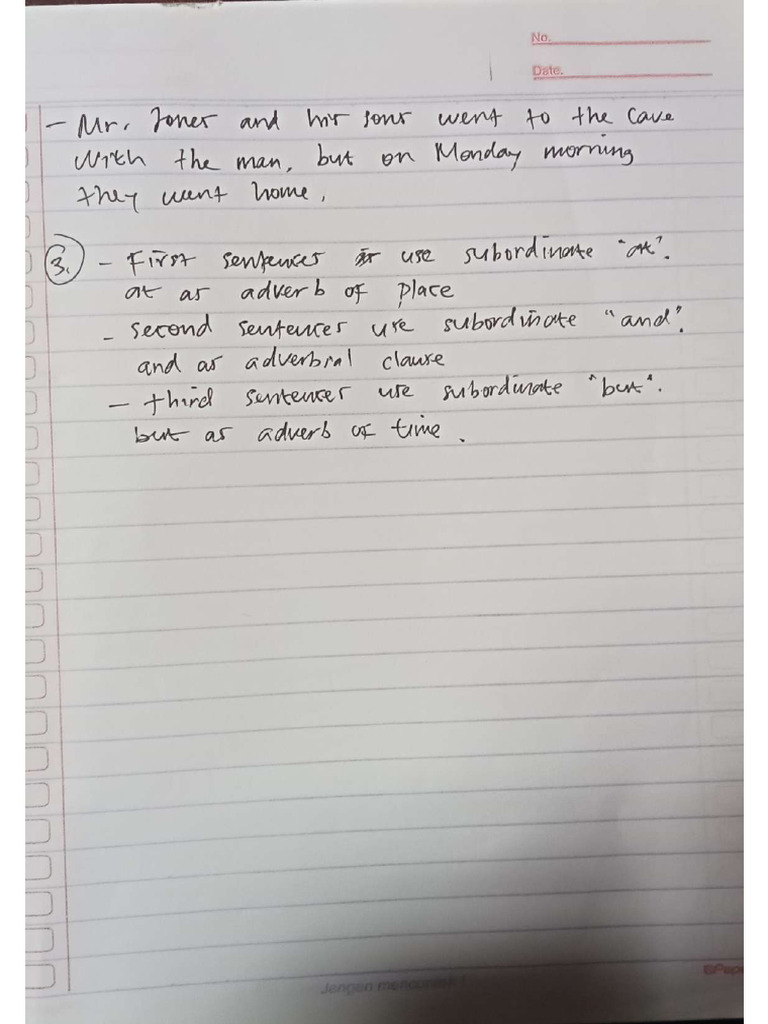 No.
Date.
- Mr. Jones and his sons went to the cave
with the man, but on Monday morning
they went home.
3. - First sentences use subordinate "at".
at as adverb of place
- second sentences use subordinate "and".
and as adverbial clause
- third sentences use subordinate "but".
but as adverb of time.
Jangan